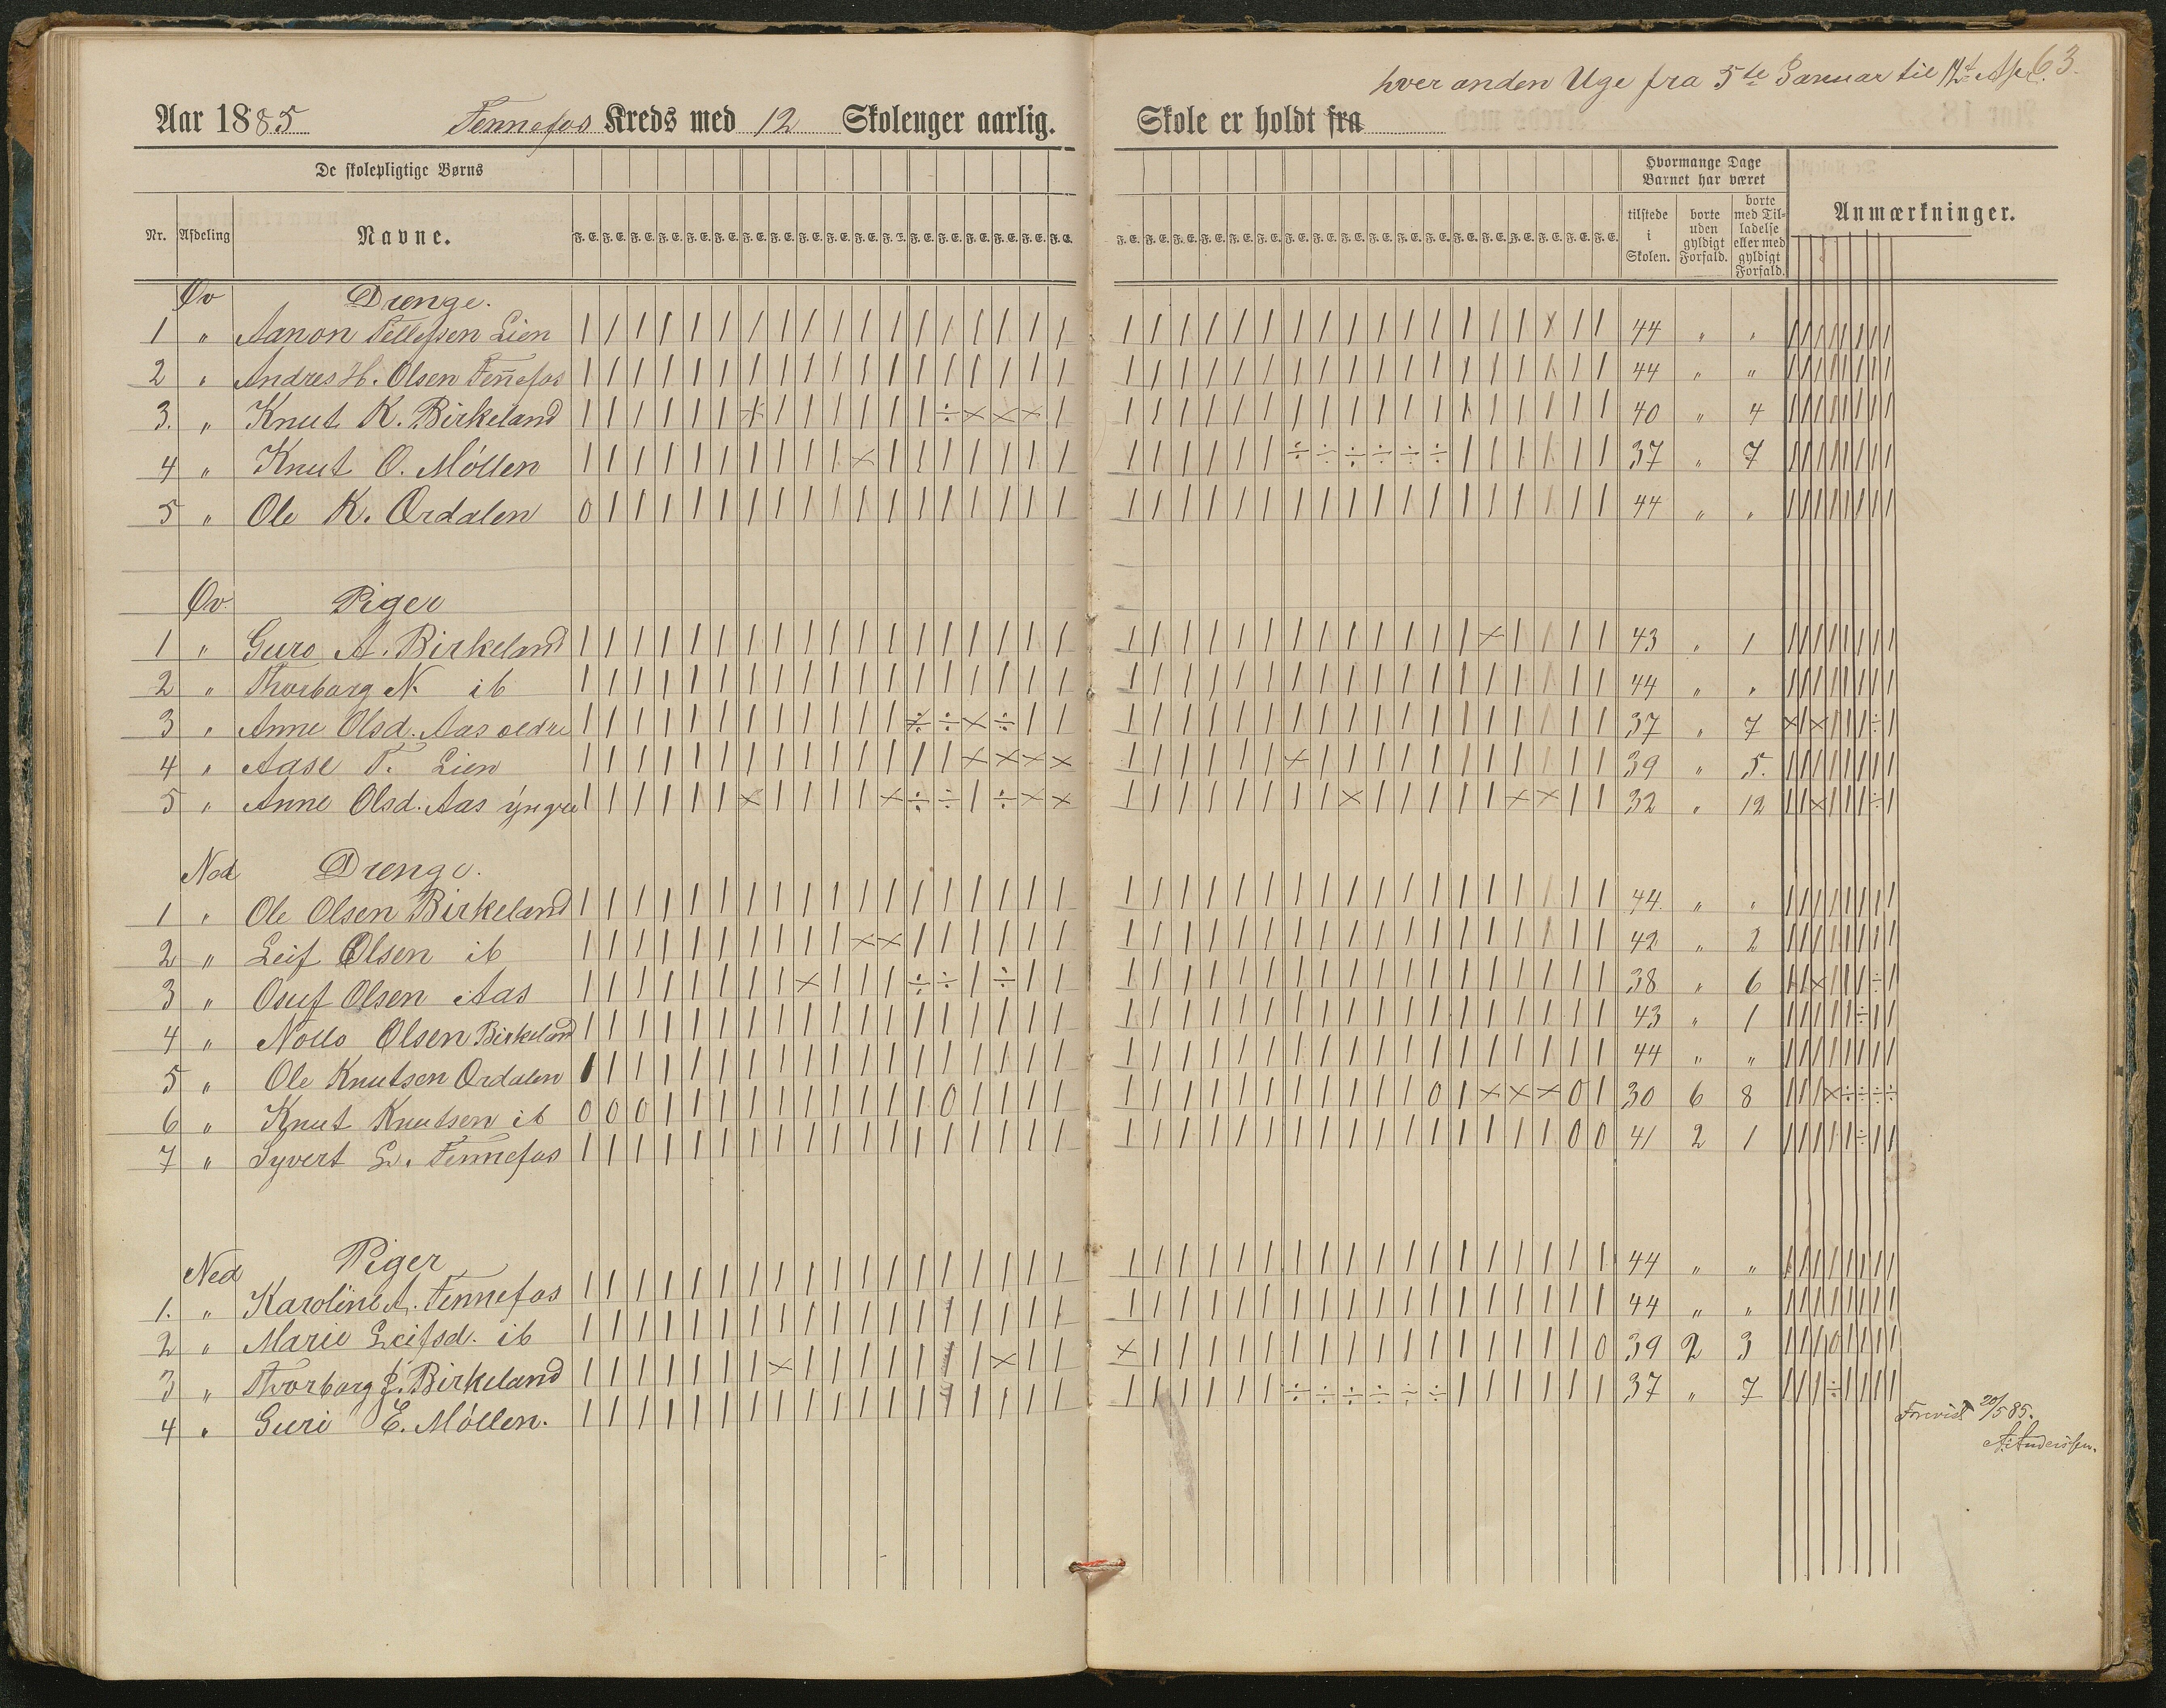 hver anden Uge fra 5te Januar til 12t Apr. 63.
Aar 1885 Fennefos Kreds med 12 Skoleuger aarlig. Skole er holdt fra
De skolepligtige Børns
Hvormange Dage Barnet har været
Nr. Afdeling Navne.
tilstede i Skolen. borte uden gyldigt Forfald. borte med Tilladelse eller med gyldigt Forfald. Anmærkninger.
Øv Drenge.
1 " Aanon Tellefsen Lien 44 " "
2 " Andres H. Olsen Fen̄efos 44 " "
3. " Knut K. Birkeland 40 " 4
4 " Knut O. Möllen 37 " 7
5 " Ole K. Ordalen 44 " "
Øv. Piger
1 " Guro A. Birkeland 43 " 1
2 " Thorborg N. ib 44 " "
3 " Anne Olsd. Aas ældre 37 " 7
4 " Aase T. Lien 39 " 5.
5 " Anne Olsd. Aas yngre 32 " 12
Ned Drenge.
1 " Ole Olsen Birkeland 44 " "
2 " Leif Olsen ib 42 " 2
3 " Osuf Olsen Aas 38 " 6
4 " Olsen Birkeland 43 " 1
5 " Ole Knutsen Ordalen 44 " "
6 " Knut Knutsen ib 30 6 8
7 " Syvert G. Fennefos 41 2 1
Ned Piger
1. " Karoline A. Fennefos 44 " "
2 " Marie Leifsd. ib 44 " "
3 " Thorborg J. Birkeland 39 2 3
4 " Guri E. Möllen. 37 " 7
Forevist 20/5 85.
A. Anderssen.